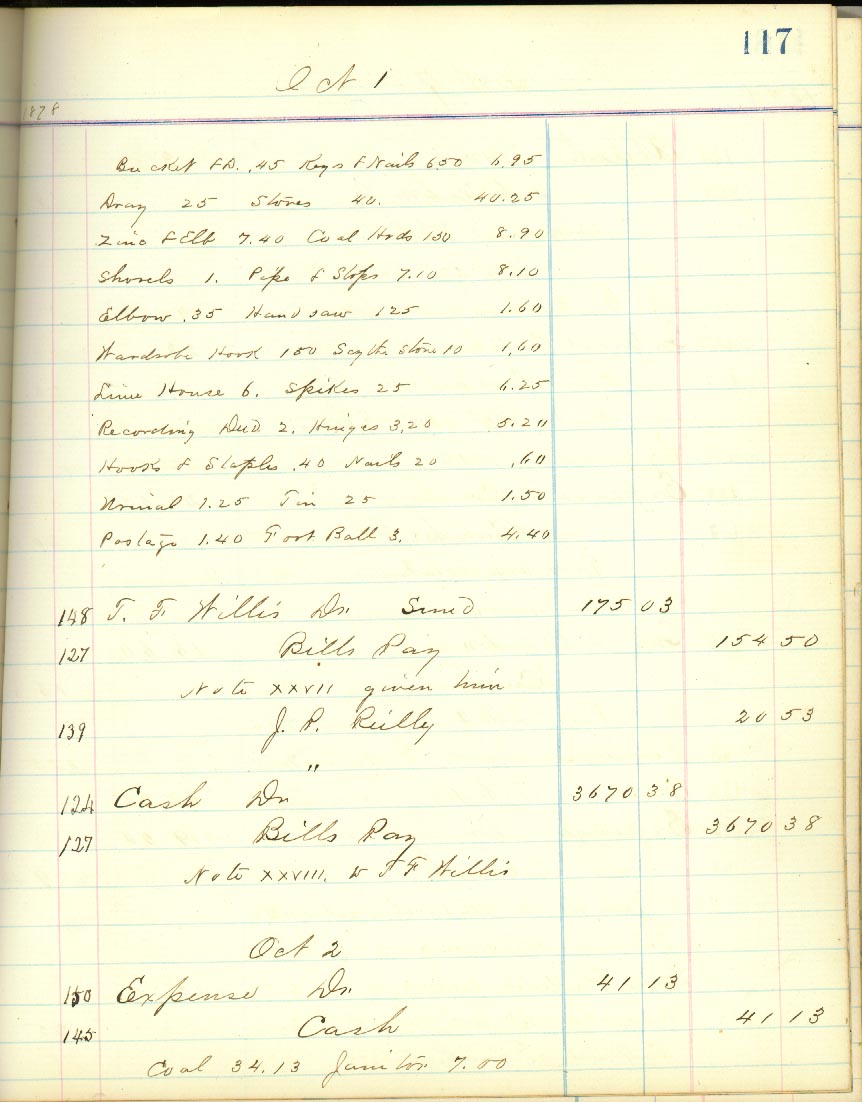 117
Oct 1
1878
Bucket &D. .45 Kegs & Nails 6.50 6.95
Dray 25 Stoves 40. 40.25
Zinc & Elb 7.40 Coal Hods 150 8.90
Shovels 1. Pipe & Stops 7.10 8.10
Elbow .35 Hand saw 125 1.60
Wardrobe Hook 150 Scythe Stone 10 1.60
Lime House 6. Spikes 25 6.25
Recording Deed 2. Hinges 3.20 5.20
Hooks & Staples .40 Nails 20 .60
Urinal 1.25 Tin 25 1.50
Postage 1.40 Foot Ball 3. 4.40
148 T. F. Willis Dr. Sund 175 03
127 Bills Pay 154 50
Note XXVII given him
139 J. P. Reilly 20 53
"
124 Cash Dr 3670 38
127 Bills Pay 3670 38
Note XXVIII. to T F Willis
Oct 2
150 Expense Dr. 41 13
145 Cash 41 13
Coal 34.13 Janitor 7.00